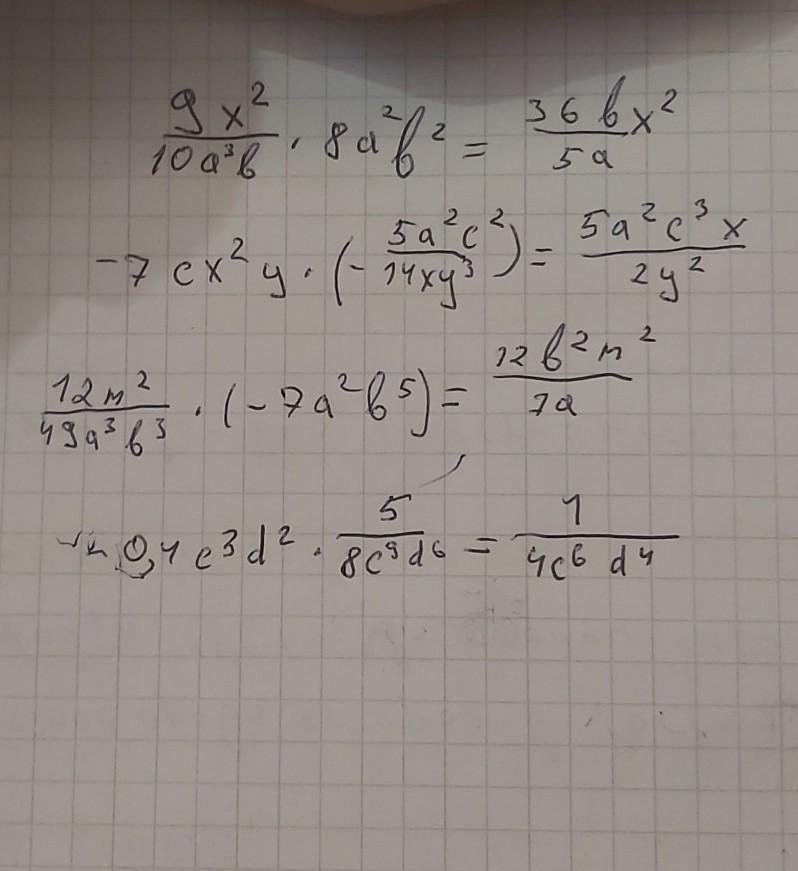 9x²/10a³b · 8a²b² = 36b/5a x²
-7cx²y · (-5a²c²/14xy³) = 5a²c³x/2y²
12m²/49a³b³ · (-7a²b⁵) = 12b²m²/7a
0,4c³d² · 5/8c⁹d⁶ = 1/4c⁶d⁴